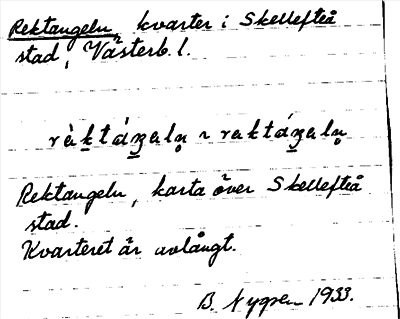 Rektangeln, kvarter i Skellefteå
stad, Västerb. l.
ràktáŋalṇ ~ raktáŋalṇ
Rektangeln, karta över Skellefteå
stad.
Kvarteret är avlångt.
B. Nygren 1933.